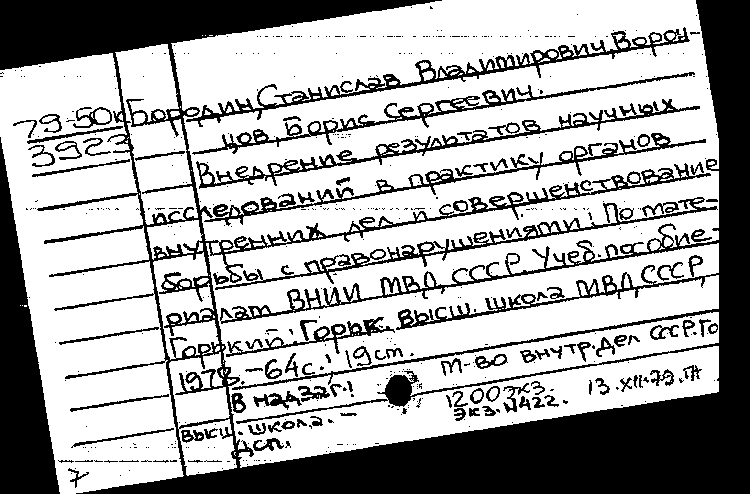 79-50к Бородин, Станислав Владимирович, Ворон-
3923 цов, Борис Сергеевич.
Внедрение результатов научных
исследований в практику органов
внутренних дел и совершенствование
борьбы с правонарушениями: По мате-
риалам ВНИИ МВД СССР. Учеб. пособие.-
Горький: Горьк. высш. школа МВД СССР,
1978. -64с.; 19см.
В надзаг.: М-во внутр. дел СССР. Го
высш. школа. -
1200 экз. 13.XII.79.
Экз. №422.
Дсп.
7